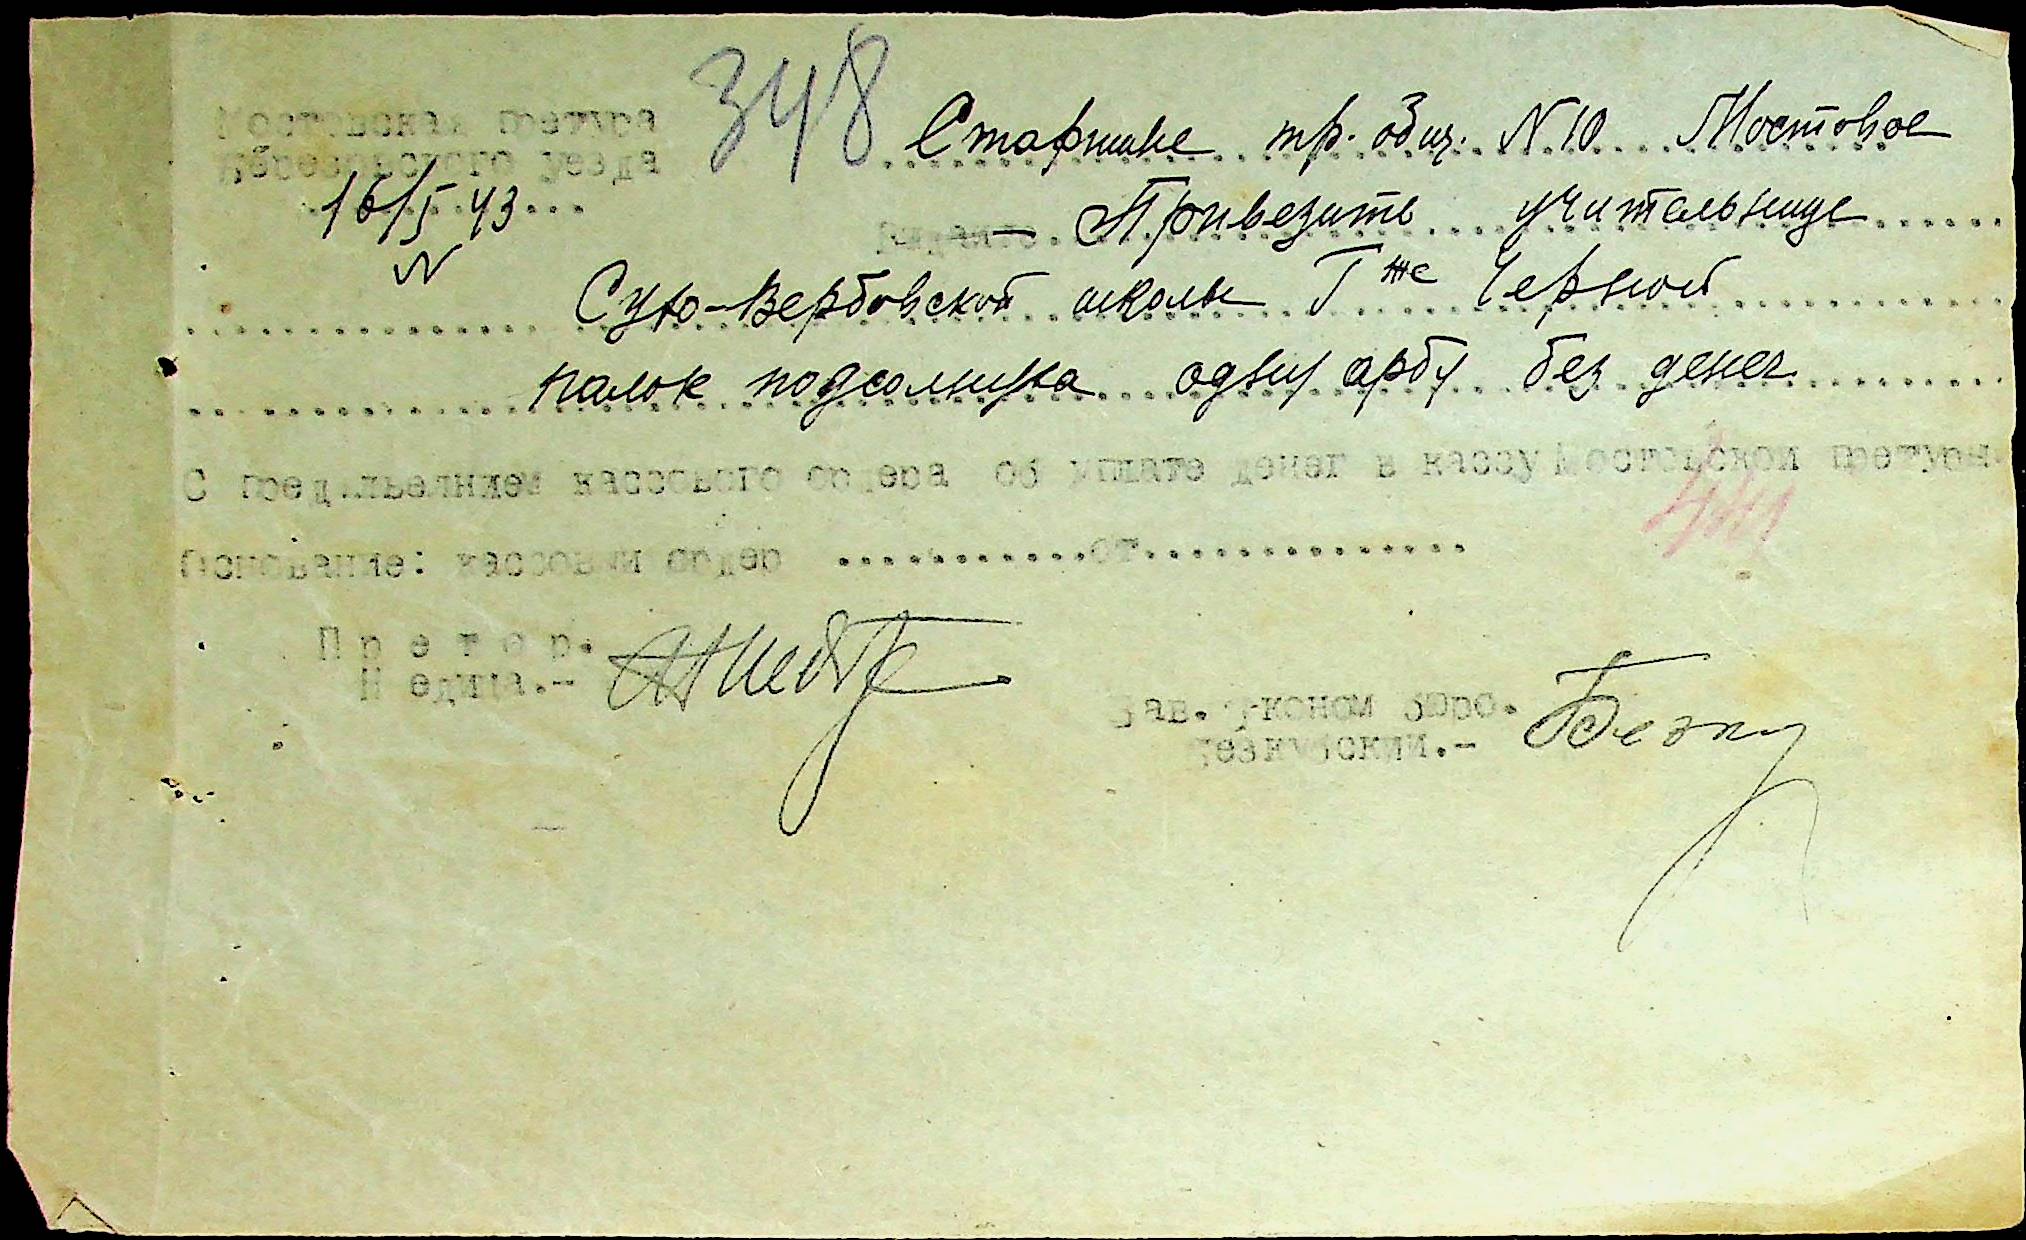 348
Мостовская претура
Березовского уезда
16/I 43
N
Старшине тр. общ. N 10 Мостовое
Выдайте Привезите учительнице
Сухо-Вербовской школы Г же Черной
палок подсолнуха одну арбу без денег
С предъявлением кассового ордера об уплате денег в кассу Мостовской претуры.
Основание: кассовый ордер ............от...............
Претор.
Зав. Эконом бюро.